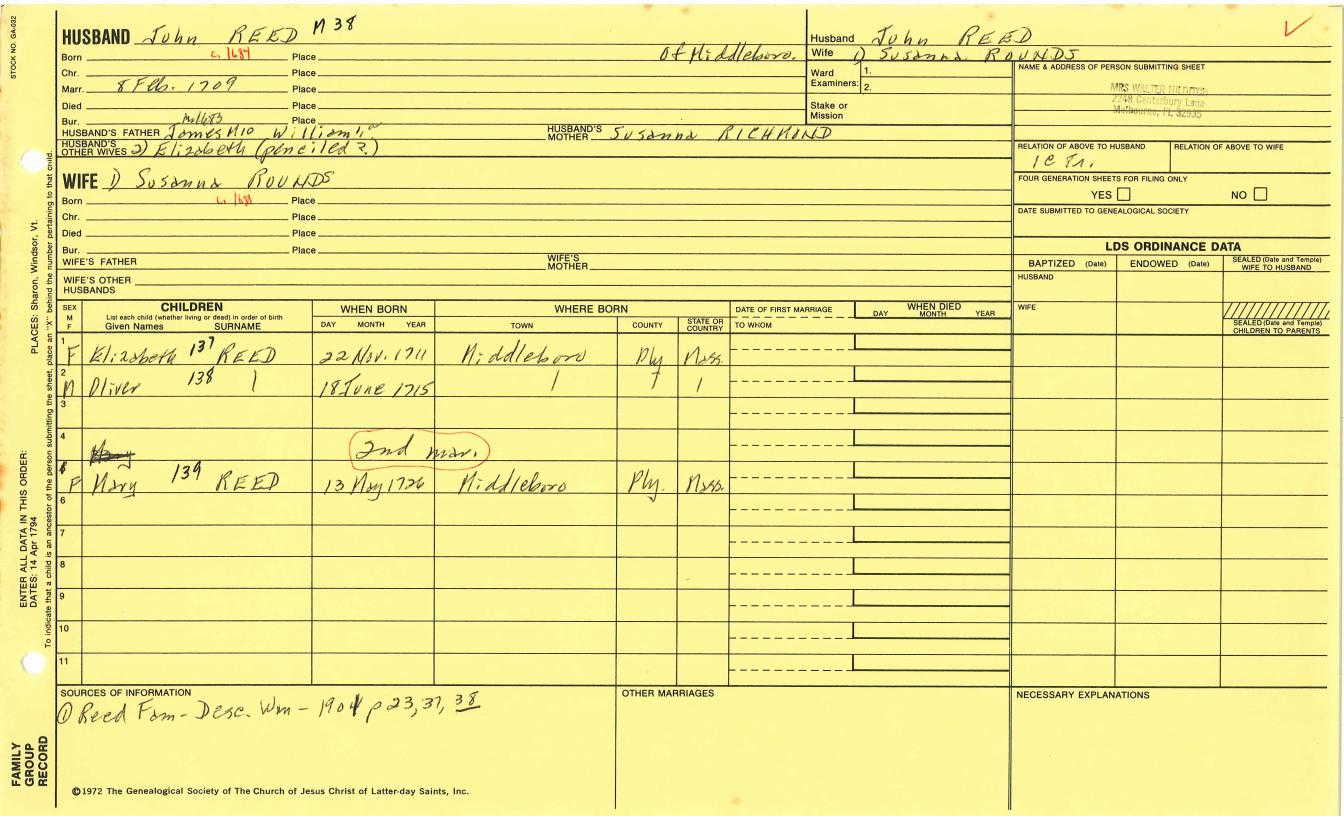 STOCK NO. GA-032
HUSBAND John REED M 38
Born c. 1684 Place Of Middleboro.
Chr. Place
Marr. 8 Feb. 1709 Place
Died Place
Bur. Place
m. 1683
HUSBAND'S FATHER James M10 William HUSBAND'S MOTHER Susanna RICHMOND
HUSBAND'S OTHER WIVES 2) Elizabeth (penciled ?)
WIFE 1) Susanna ROUNDS
Born Place
Chr. Place
Died Place
Bur. Place
WIFE'S FATHER WIFE'S MOTHER
WIFE'S OTHER HUSBANDS
Husband John REED
Wife 1) Susanna ROUNDS
Ward Examiners: 1.
2.
Stake or Mission
NAME & ADDRESS OF PERSON SUBMITTING SHEET
MRS WALTER
Canterbury Lane
Melbourne, FL 32935
RELATION OF ABOVE TO HUSBAND RELATION OF ABOVE TO WIFE
FOUR GENERATION SHEETS FOR FILING ONLY
YES NO
DATE SUBMITTED TO GENEALOGICAL SOCIETY
LDS ORDINANCE DATA
BAPTIZED (Date) ENDOWED (Date) SEALED (Date and Temple) WIFE TO HUSBAND
HUSBAND
WIFE
SEALED (Date and Temple) CHILDREN TO PARENTS
SEX M F CHILDREN WHEN BORN WHERE BORN DATE OF FIRST MARRIAGE WHEN DIED
List each child (whether living or dead) in order of birth
Given Names SURNAME DAY MONTH YEAR TOWN COUNTY STATE OR COUNTRY TO WHOM DAY MONTH YEAR
1 F Elizabeth 137 REED 22 Nov. 1711 Middleboro Ply Mass.
2 M Oliver 138 18 June 1715
3
4 Mary 2nd mar.
5 F Mary 139 REED 13 May 1726 Middleboro Ply. Mass.
6
7
8
9
10
11
SOURCES OF INFORMATION
① Reed Fam - Desc. Wm - 1901 p 23, 37, 38
OTHER MARRIAGES
NECESSARY EXPLANATIONS
©1972 The Genealogical Society of The Church of Jesus Christ of Latter-day Saints, Inc.
FAMILY GROUP RECORD
ENTER ALL DATA IN THIS ORDER:
DATES: 14 Apr 1794
PLACES: Sharon, Windsor, Vt.
To indicate that a child is an ancestor of the person submitting the sheet, place an "X" behind the number pertaining to that child.